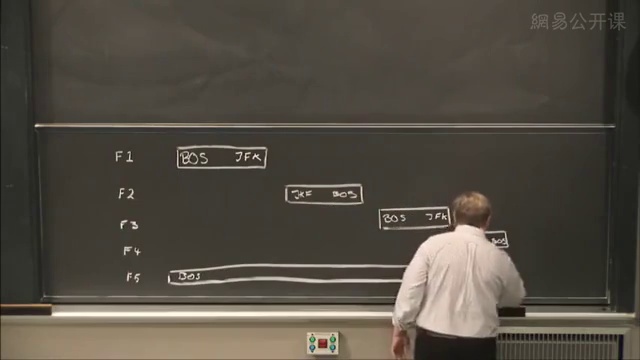 網易公开课
F1 BOS JFK
F2 JKF BOS
F3 BOS JFK
F4 BOS
F5 BOS